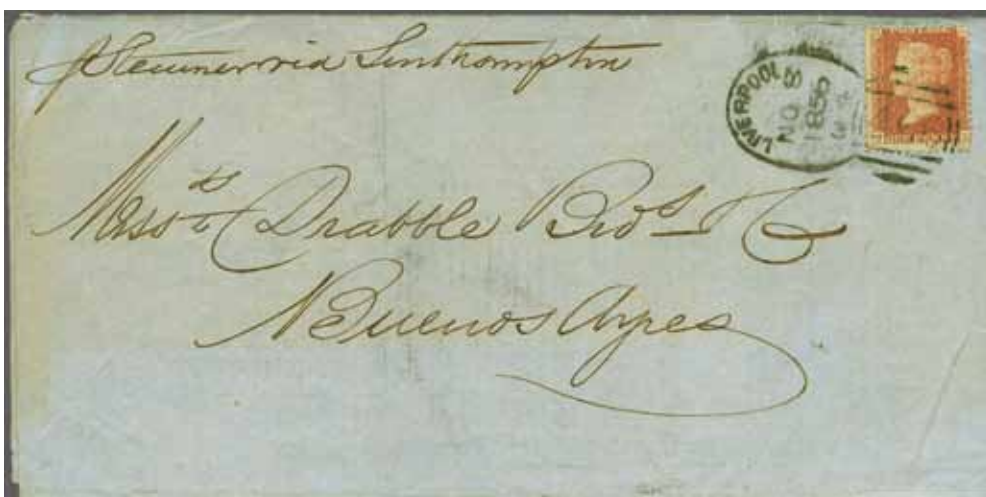 p Steamer via Southampton
LIVERPOOL
NO 8
1856
Messrs Drabble Bros & Co
Buenos Ayres